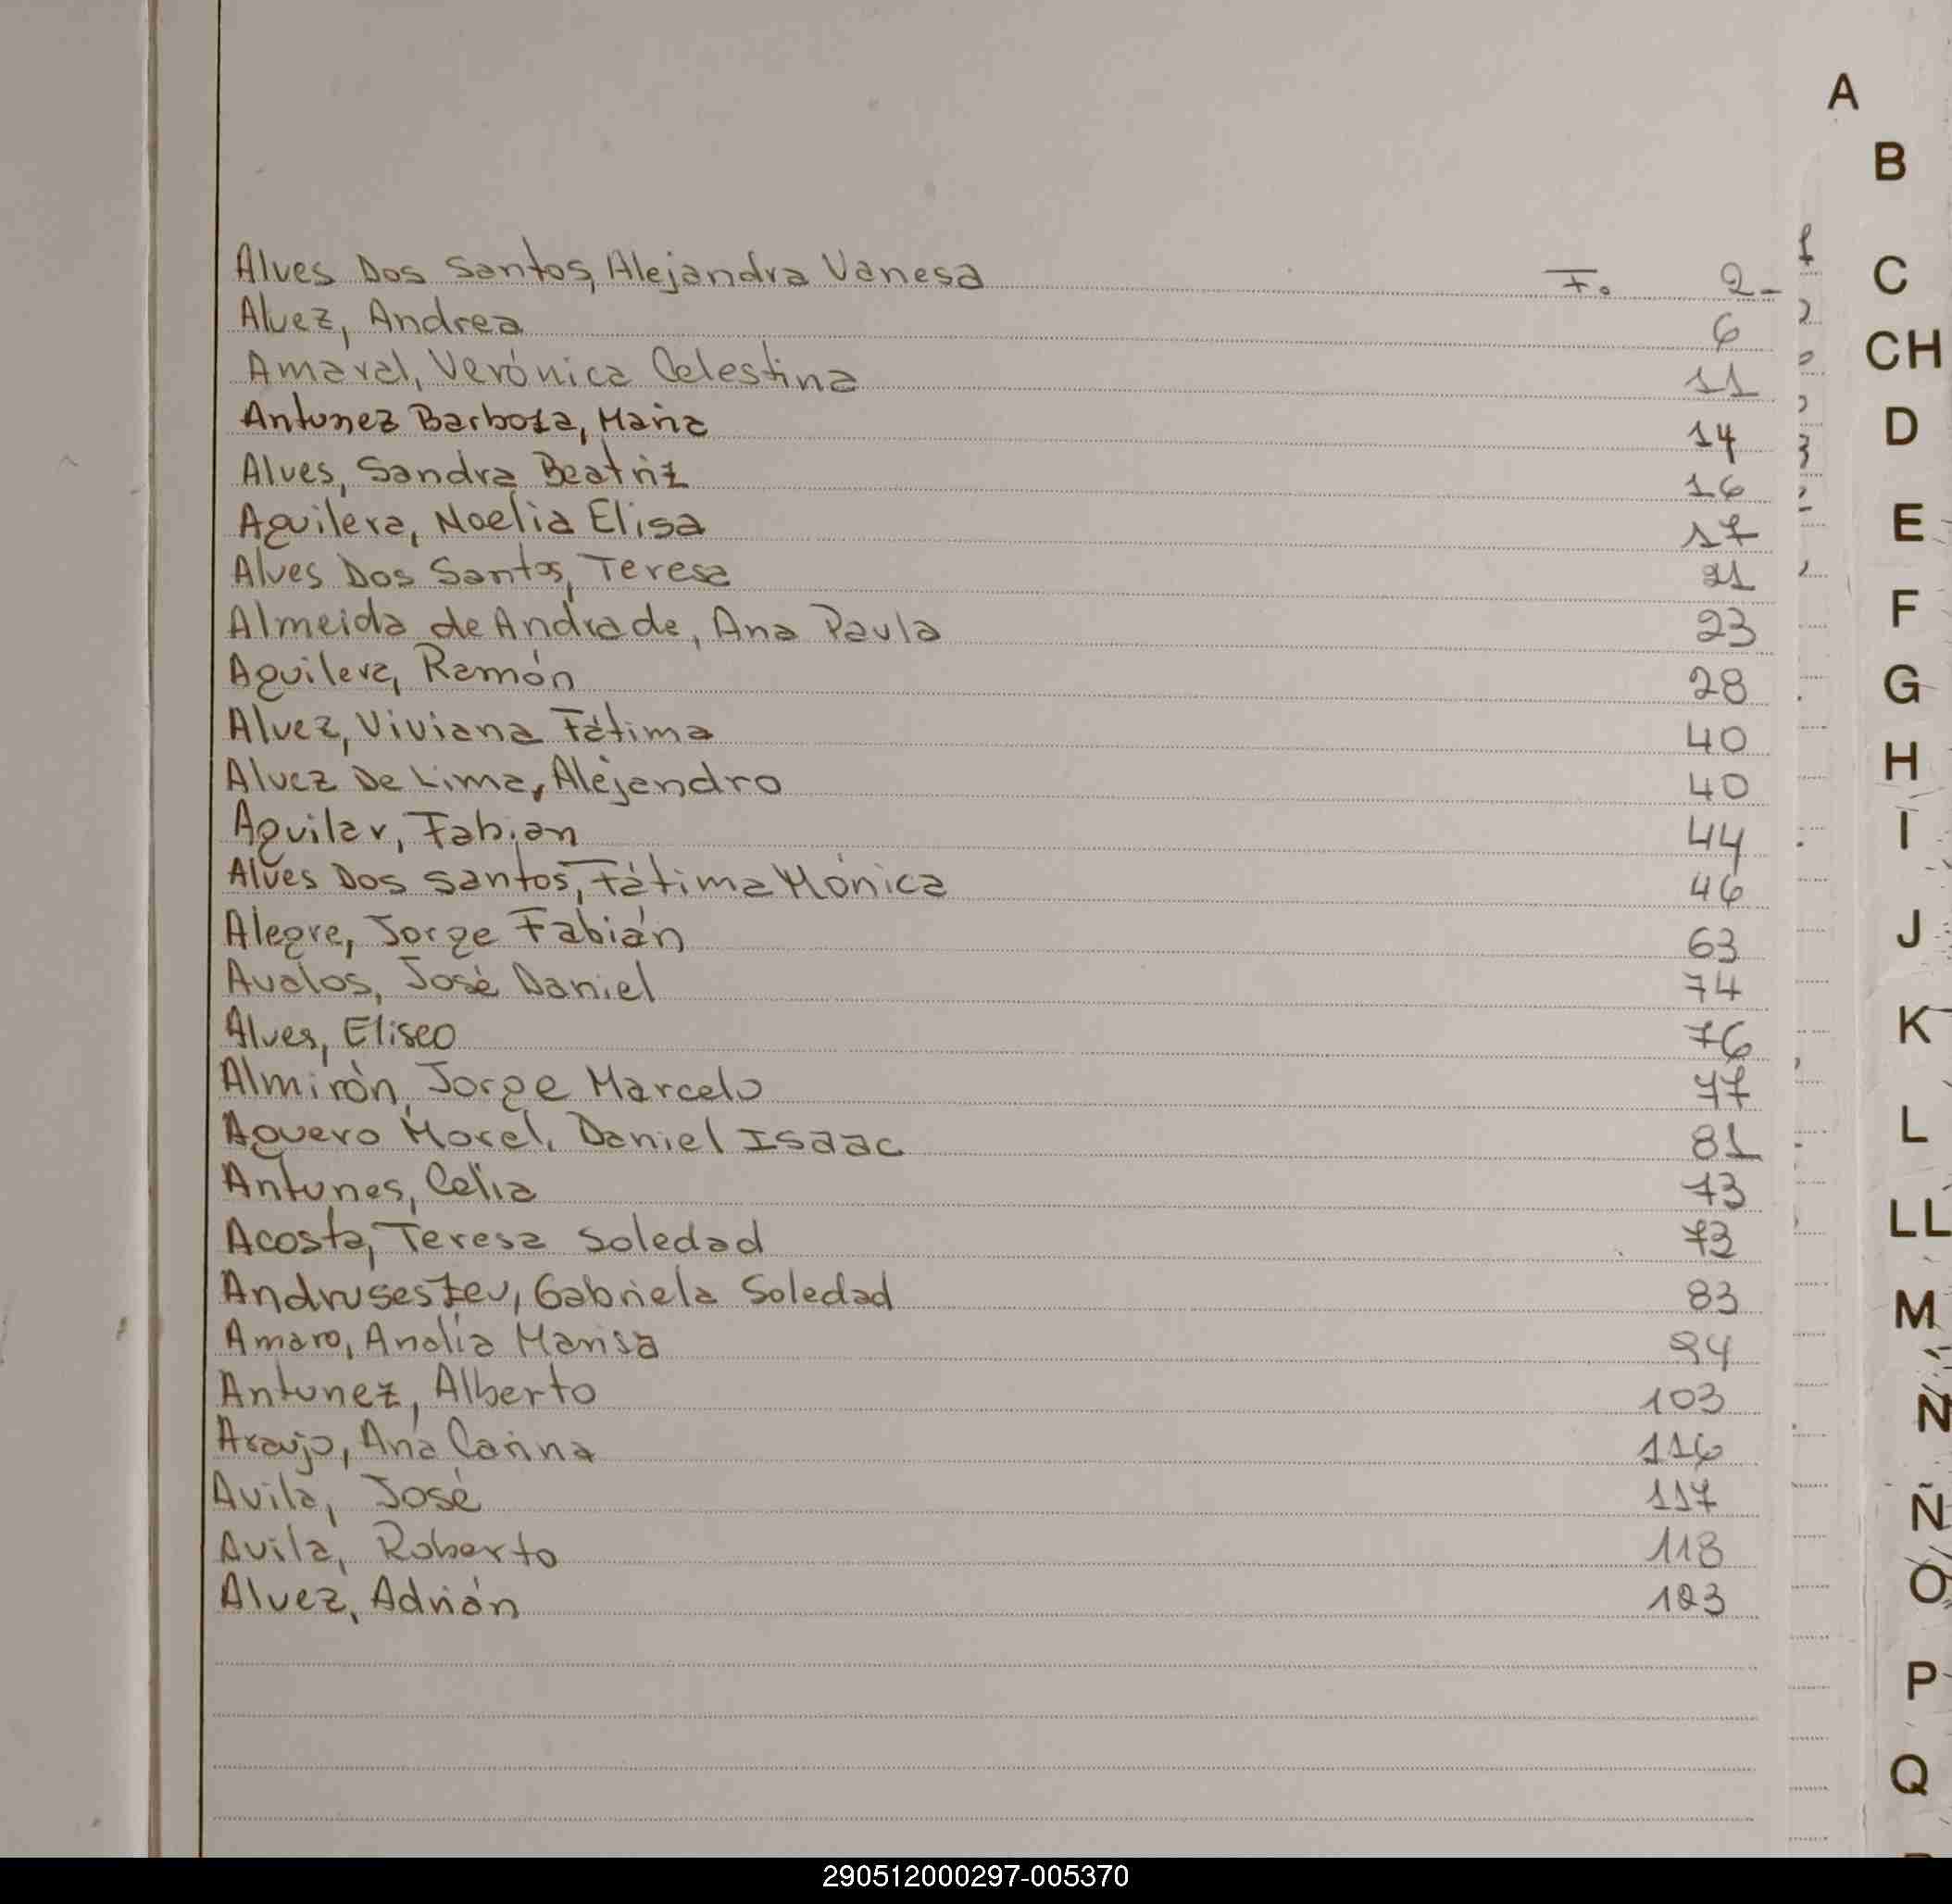 A
B
C
CH
D
E
F
G
H
I
J
K
L
LL
M
N
Ñ
O
P
Q
Alves Dos Santos, Alejandra Vanesa F. 2-
Alvez, Andrea 6
Amaral, Verónica Celestina 11
Antunez Barboza, María 14
Alves, Sandra Beatriz 16
Aguilera, Noelia Elisa 17
Alves Dos Santos, Teresa 21
Almeida de Andrade, Ana Paula 23
Aguilera, Ramón 28
Alvez, Viviana Fátima 40
Alvez De Lima, Alejandro 40
Aguilar, Fabian 44
Alves Dos Santos, Fátima Mónica 46
Alegre, Jorge Fabián 63
Avalos, José Daniel 74
Alves, Eliseo 76
Almirón, Jorge Marcelo 77
Aguero Morel, Daniel Isaac 81
Antunes, Celia 73
Acosta, Teresa Soledad 73
Gabriela Soledad 83
Amaro, Analía Marisa 94
Antunez, Alberto 103
Araujo, Ana Carina 116
Avila, José 117
Avila, Roberto 118
Alvez, Adrián 123
290512000297-005370